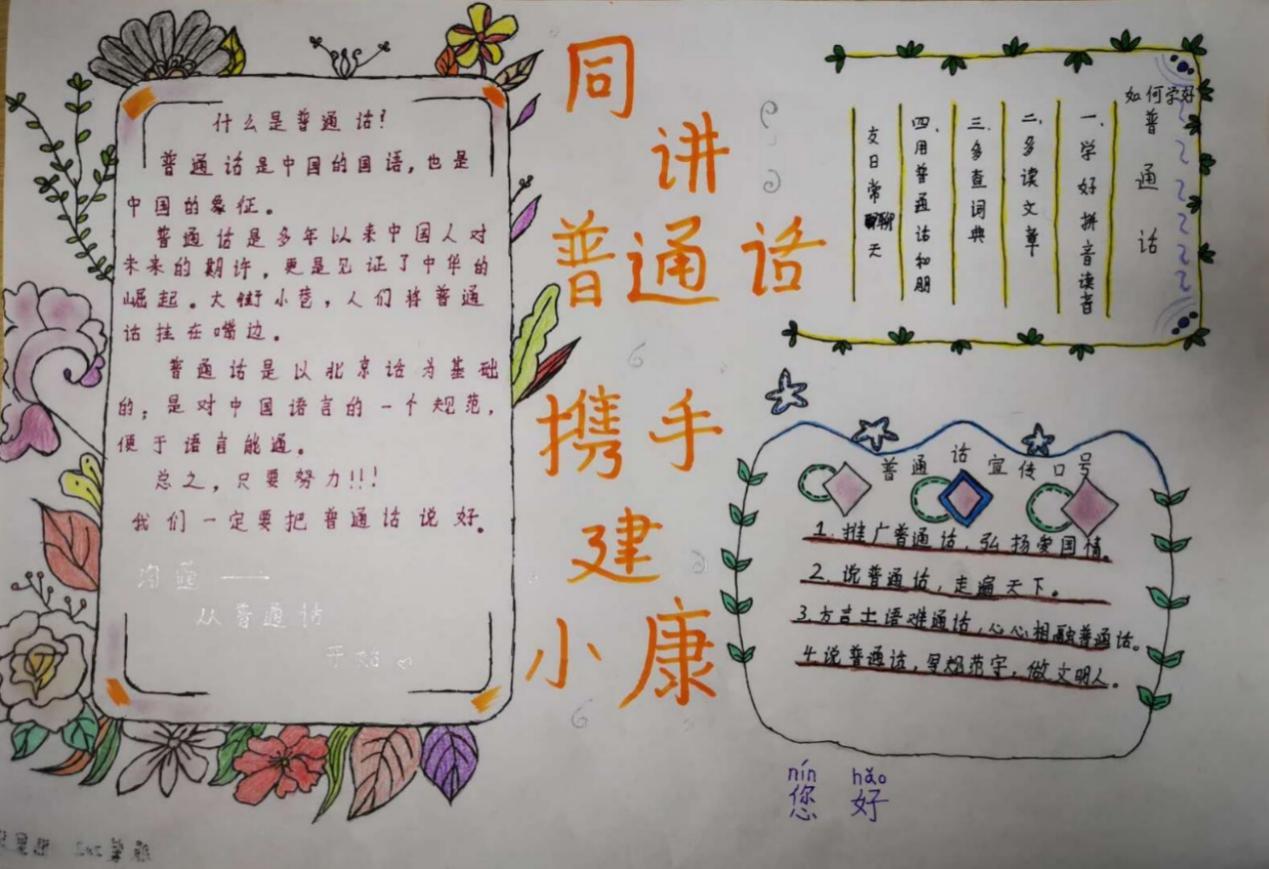 什么是普通话?
普通话是中国的国语,也是
中国的象征。
普通话是多年以来中国人对
未来的期许,更是见证了中华的
崛起。大街小巷,人们将普通
话挂在嘴边。
普通话是以北京话为基础
的;是对中国语言的一个规范,
便于语言能通。
总之,只要努力!!!
我们一定要把普通话说好。
沟通——
从普通话
开始
同
讲
普通话
携手
建
小康
如何学好
普通话
一、学好拼音读音
二、多读文章
三、多查词典
四、用普通话和朋
友日常聊天
普通话宣传口号
1.推广普通话,弘扬爱国情。
2.说普通话,走遍天下。
3.方言土语难通话,心心相融普通话。
4.说普通话,写规范字,做文明人。
nín hǎo
您 好